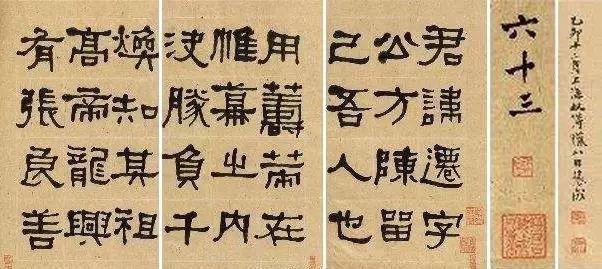 乙卯十二月上海
六十三
君諱遷字
公方陳留
己吾人也
用籌策在
帷幕之內
決勝負千
煥知其祖
高帝龍興
有張良善